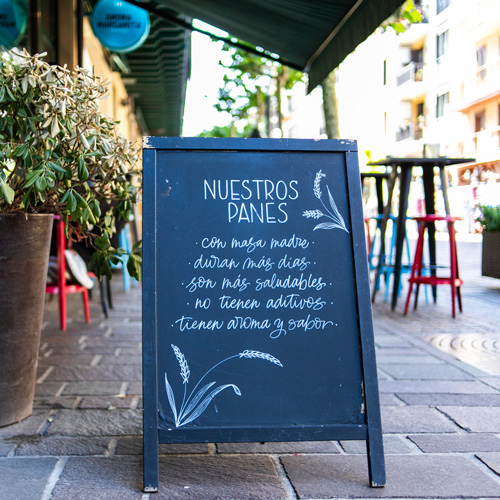 NUESTROS
PANES
con masa madre.
duran más días.
son más saludables.
no tienen aditivos.
tienen aroma y sabor.